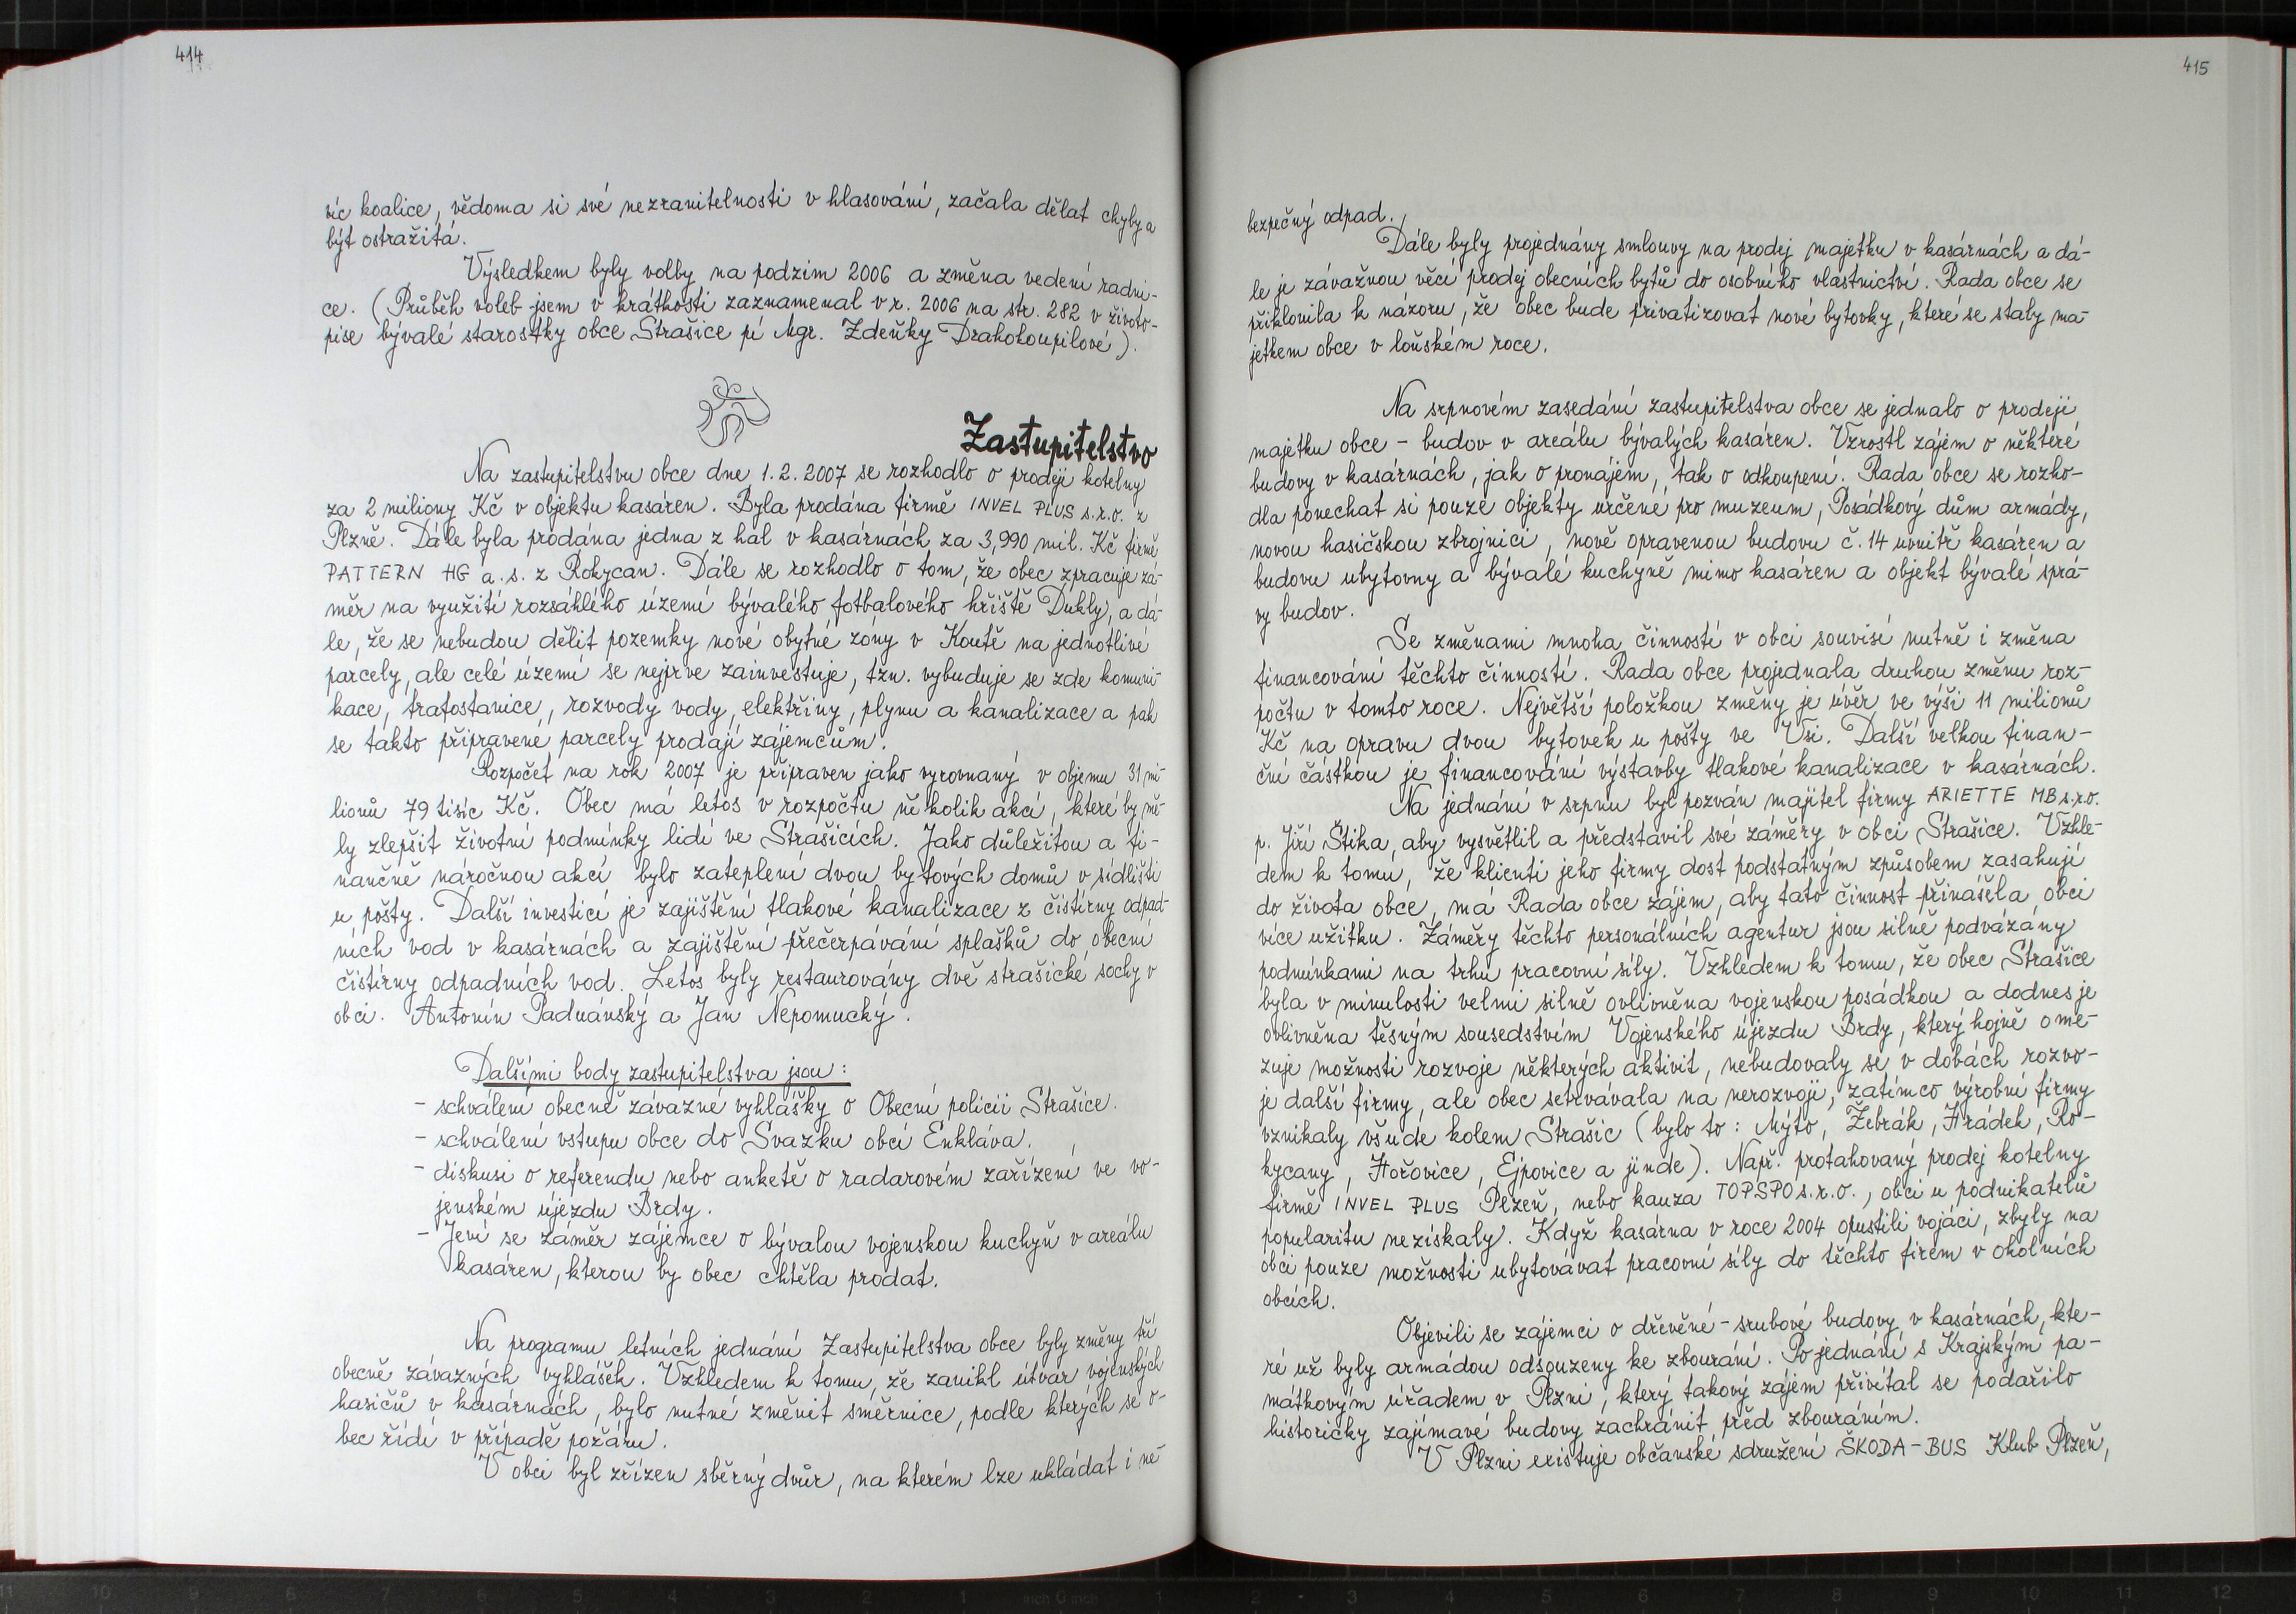 414
víc koalice, vědoma si své nezranitelnosti v hlasování, začala dělat chyby a
být ostražitá.
Výsledkem byly volby na podzim 2006 a změna vedení radni-
ce. (Průběh voleb jsem v krátkosti zaznamenal v r. 2006 na str. 282 v životo-
pise bývalé starostky obce Strašice pí Mgr. Zdeňky Drahokoupilové).
Zastupitelstvo
Na zastupitelstvu obce dne 1.2.2007 se rozhodlo o prodeji kotelny
za 2 miliony Kč v objektu kasáren. Byla prodána firmě INVEL PLUS s.r.o. z
Plzně. Dále byla prodána jedna z hal v kasárnách za 3,990 mil. Kč firmě
PATTERN HG a.s. z Rokycan. Dále se rozhodlo o tom, že obec zpracuje zá-
měr na využití rozsáhlého území bývalého fotbalového hřiště Dukly, a dá-
le, že se nebudou dělit pozemky nové obytné zóny v Koutě na jednotlivé
parcely, ale celé území se nejprve zainvestuje, tzn. vybuduje se zde komuni-
kace, trafostanice, rozvody vody, elektřiny, plynu a kanalizace a pak
se takto připravené parcely prodají zájemcům.
Rozpočet na rok 2007 je připraven jako vyrovnaný v objemu 31 mi-
lionů 79 tisíc Kč. Obec má letos v rozpočtu několik akcí, které by mě-
ly zlepšit životní podmínky lidí ve Strašicích. Jako důležitou a fi-
nančně náročnou akcí bylo zateplení dvou bytových domů v sídlišti
u pošty. Další investicí je zajištění tlakové kanalizace z čistírny odpad-
ních vod v kasárnách a zajištění přečerpávání splašků do obecní
čistírny odpadních vod. Letos byly restaurovány dvě strašické sochy v
obci. Antonín Paduánský a Jan Nepomucký.
Dalšími body zastupitelstva jsou:
- schválení obecně závazné vyhlášky o Obecní policii Strašice.
- schválení vstupu obce do Svazku obcí Enkláva.
- diskusi o referendu nebo anketě o radarovém zařízení ve vo-
jenském újezdu Brdy.
- Jeví se záměr zájemce o bývalou vojenskou kuchyň v areálu
kasáren, kterou by obec chtěla prodat.
Na programu letních jednání Zastupitelstva obce byly změny tří
obecně závazných vyhlášek. Vzhledem k tomu, že zanikl útvar vojenských
hasičů v kasárnách, bylo nutné změnit směrnice, podle kterých se o-
bec řídí v případě požáru.
V obci byl zřízen sběrný dvůr, na kterém lze ukládat i ne-
415
bezpečný odpad.
Dále byly projednány smlouvy na prodej majetku v kasárnách a dá-
le je závažnou věcí prodej obecních bytů do osobního vlastnictví. Rada obce se
přiklonila k názoru, že obec bude privatizovat nové bytovky, které se staly ma-
jetkem obce v loňském roce.
Na srpnovém zasedání zastupitelstva obce se jednalo o prodeji
majetku obce - budov v areálu bývalých kasáren. Vzrostl zájem o některé
budovy v kasárnách, jak o pronájem, tak o odkoupení. Rada obce se rozho-
dla ponechat si pouze objekty určené pro muzeum, Posádkový dům armády,
novou hasičskou zbrojnici, nově opravenou budovu č.14 uvnitř kasáren a
budovu ubytovny a bývalé kuchyně mimo kasáren a objekt bývalé sprá-
vy budov.
Se změnami mnoha činností v obci souvisí nutně i změna
financování těchto činností. Rada obce projednala druhou změnu roz-
počtu v tomto roce. Největší položkou změny je úvěr ve výši 11 milionů
Kč na opravu dvou bytovek u pošty ve Vsi. Další velkou finan-
ční částkou je financování výstavby tlakové kanalizace v kasárnách.
Na jednání v srpnu byl pozván majitel firmy ARIETTE MB s.r.o.
p. Jiří Štika, aby vysvětlil a představil své záměry v obci Strašice. Vzhle-
dem k tomu, že klienti jeho firmy dost podstatným způsobem zasahují
do života obce, má Rada obce zájem, aby tato činnost přinášela obci
více užitku. Záměry těchto personálních agentur jsou silně podvázány
podmínkami na trhu pracovní síly. Vzhledem k tomu, že obec Strašice
byla v minulosti velmi silně ovlivněna vojenskou posádkou a dodnes je
ovlivněna těsným sousedstvím Vojenského újezdu Brdy, který hojně ome-
zuje možnosti rozvoje některých aktivit, nebudovaly se v dobách rozvo-
je další firmy, ale obec setrvávala na nerozvoji, zatímco výrobní firmy
vznikaly všude kolem Strašic (bylo to: Mýto, Žebrák, Hrádek, Ro-
kycany, Hořovice, Ejpovice a jinde). Např. protahovaný prodej kotelny
firmě INVEL PLUS Plzeň, nebo kauza TOPSPO s.r.o., obci u podnikatelů
popularitu nezískaly. Když kasárna v roce 2004 opustili vojáci, zbyly na
obci pouze možnosti ubytovávat pracovní síly do těchto firem v okolních
obcích.
Objevili se zájemci o dřevěné - srubové budovy v kasárnách, kte-
ré už byly armádou odsouzeny ke zbourání. Po jednání s Krajským pa-
mátkovým úřadem v Plzni, který takový zájem přivítal se podařilo
historicky zajímavé budovy zachránit před zbouráním.
V Plzni existuje občanské sdružení ŠKODA-BUS Klub Plzeň,